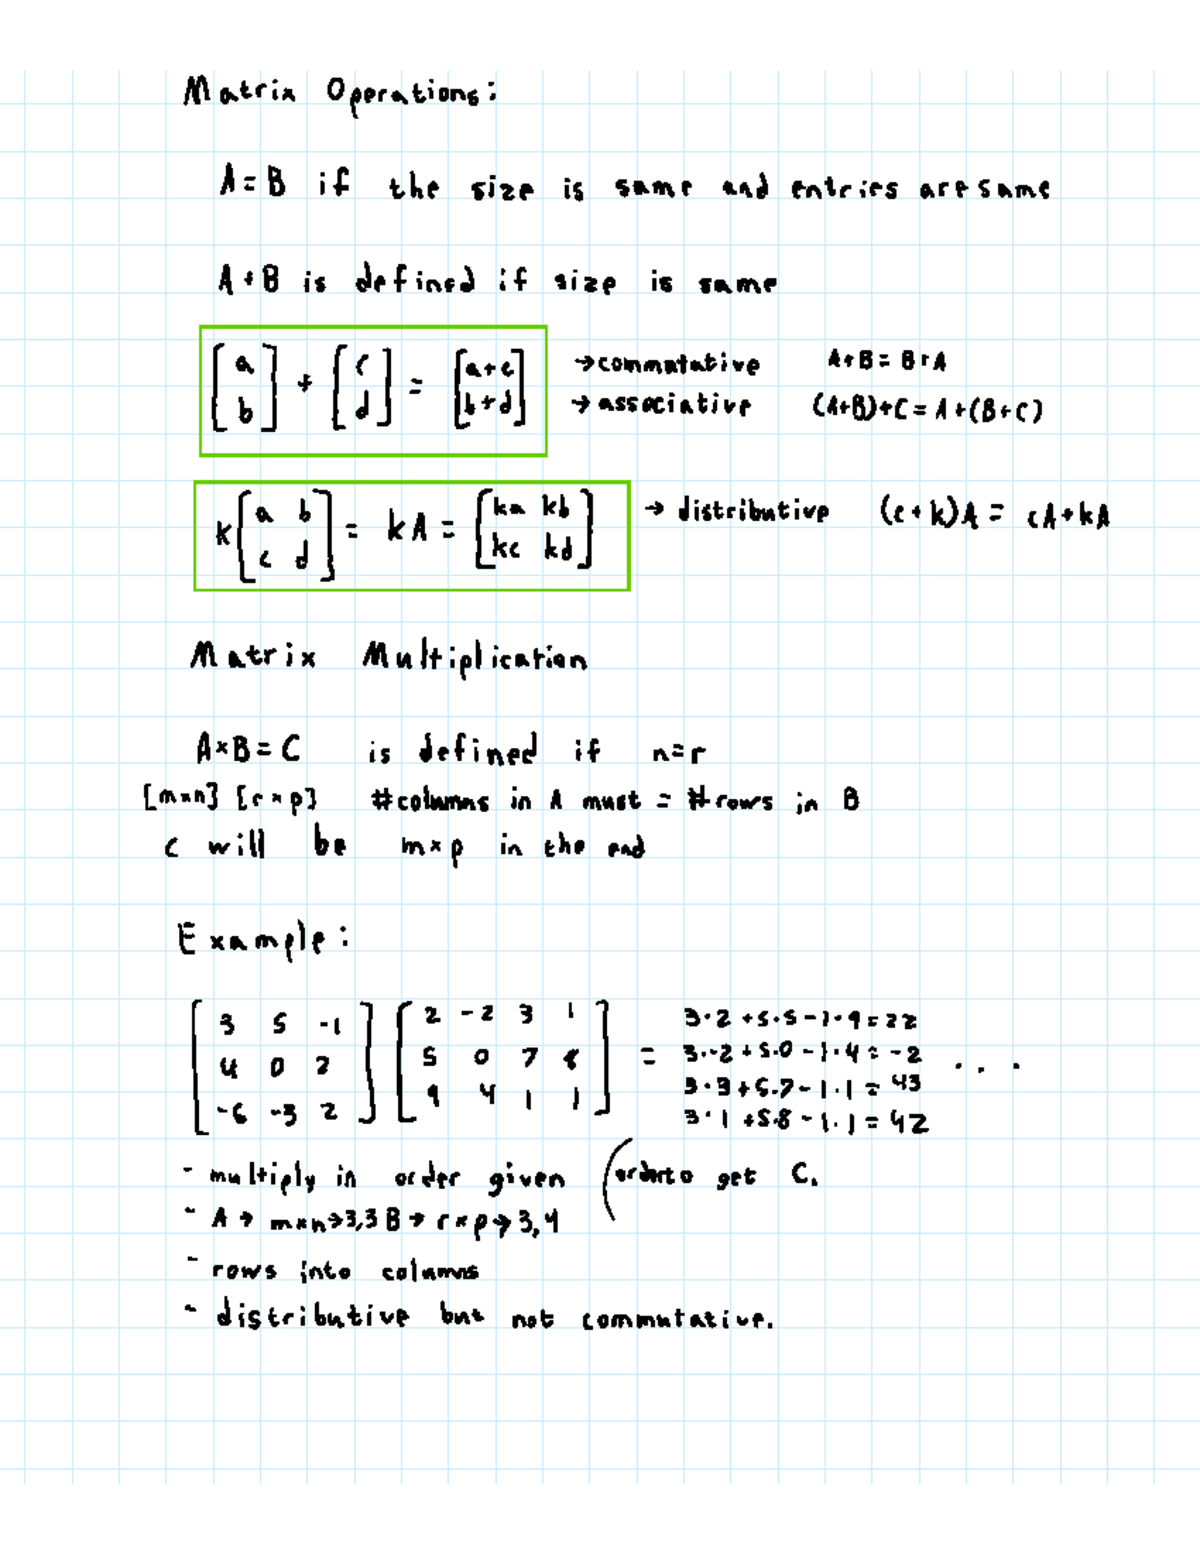 Matrix Operations:
A=B if the size is same and entries are same
A+B is defined if size is same
[a b] + [c d] = [a+c b+d] →commutative A+B = B+A
→ associative (A+B)+C = A+(B+C)
k[a b c d] = kA = [ka kb kc kd] → distributive (c+k)A = cA+kA
Matrix Multiplication
A×B=C is defined if n=r
[m×n] [r×p] #columns in A must = #rows in B
C will be m×p in the end
Example:
[3 5 -1 [2 -2 3 1 3·2 +5·5-1·9=22
4 0 2 5 0 7 8 = 3·-2+5·0-1·4=-2 ...
-6 -3 2] 9 4 1 1] 3·3+5·7-1·1=43
3·1+5·8-1·1=42
- multiply in order given (order to get C.
- A → m×n→3,3 B→ r×p→3,4
- rows into columns
- distributive but not commutative.